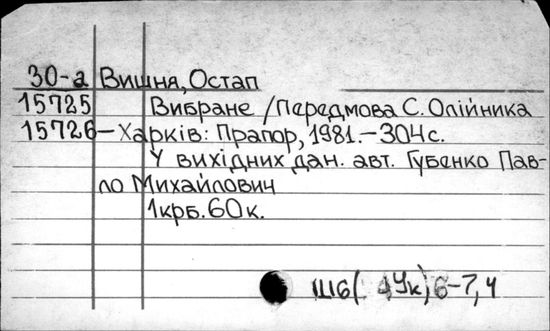 30-а Вишня, Остап
15725 Вибране / Передмова С. Олійника
15726 – Харків: Прапор, 1981. – 304 с.
У вихідних дан. авт. Губенко Пав-
ло Михайлович
1крб. 60к.
Ш6( 4Ук) 6-7,4